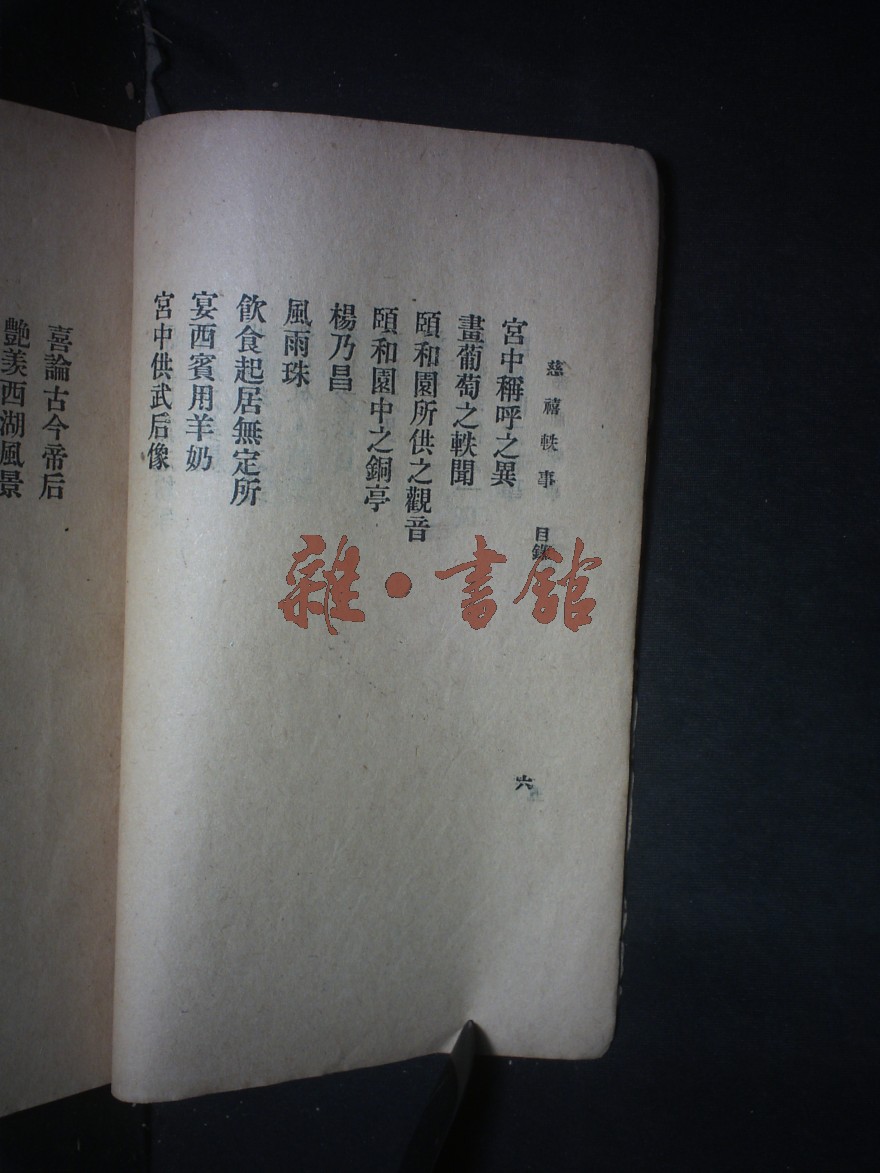 慈禧軼事 目錄 六
宮中稱呼之異
畫葡萄之軼聞
頤和園所供之觀音
頤和園中之銅亭
楊乃昌
風雨珠
飲食起居無定所
宴西賓用羊奶
宮中供武后像
喜論古今帝后
艷羨西湖風景
雜·書館